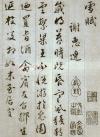 雪賦
謝惠連
歲將暮時既昏寒風積
愁雲繁梁王不悅游於兔園
迺置旨酒命賓友召鄒生
延枚叟相如末至居客